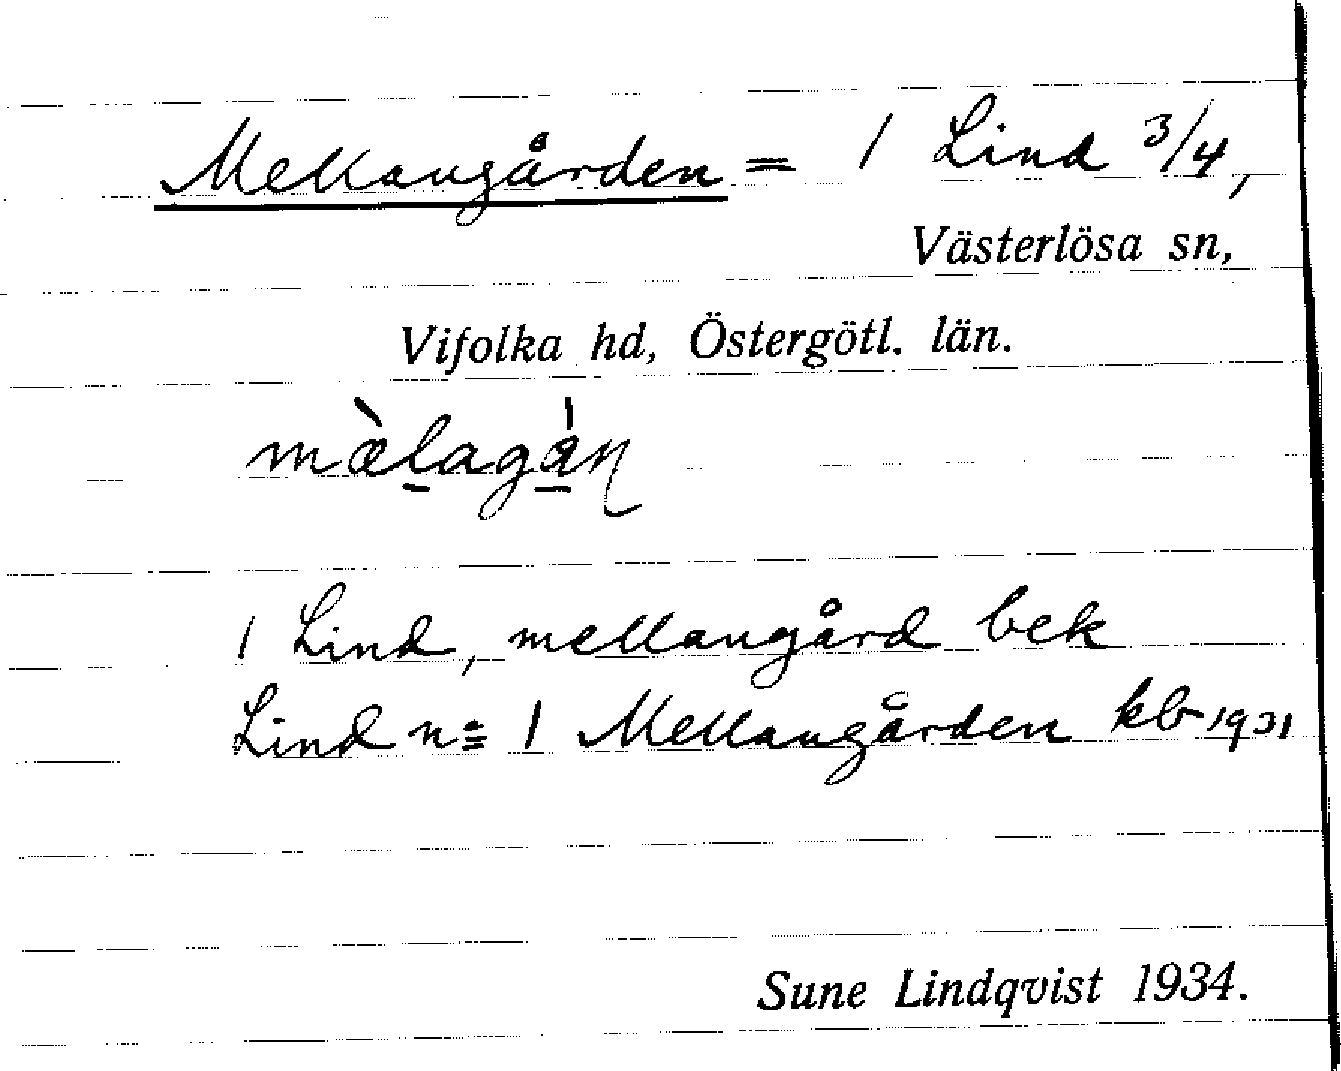 Mellangården = 1 Lind 3/4,
Västerlösa sn,
Vifolka hd, Östergötl. län.
mæ̀lagȧ̀ṇ
1 Lind, mellangård bek
Lind n= 1 Mellangården kb 1931
Sune Lindqvist 1934.